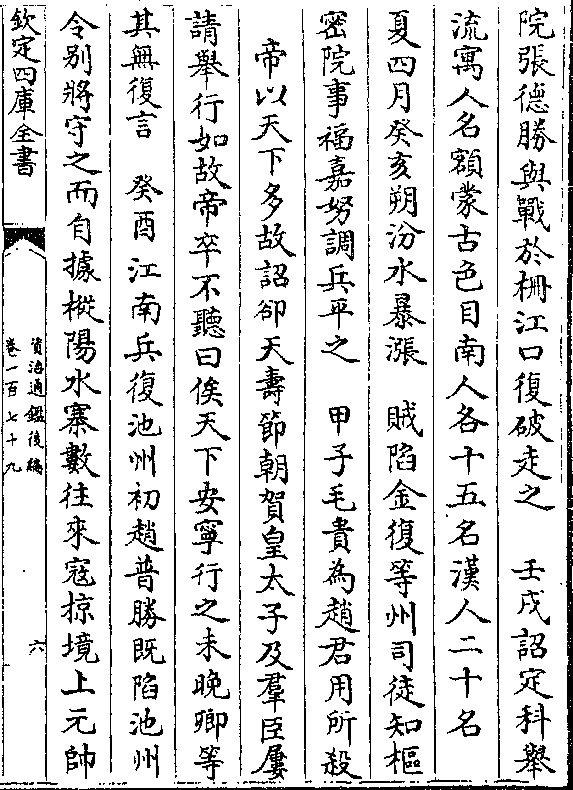 院張德勝與戰於柵江口復破走之　壬戌詔定科舉
流寓人名額蒙古色目南人各十五名漢人二十名
夏四月癸亥朔汾水暴漲　賊陷金復等州司徒知樞
密院事福嘉努調兵平之　甲子毛貴為趙君用所殺
帝以天下多故詔卻天壽節朝賀皇太子及羣臣屢
請舉行如故帝卒不聽曰俟天下安寧行之未晚卿等
其無復言　癸酉江南兵復池州初趙普勝既陷池州
令别將守之而自據樅陽水寨數往來寇掠境上元帥
欽定四庫全書
資治通鑑後編
卷一百七十九
六